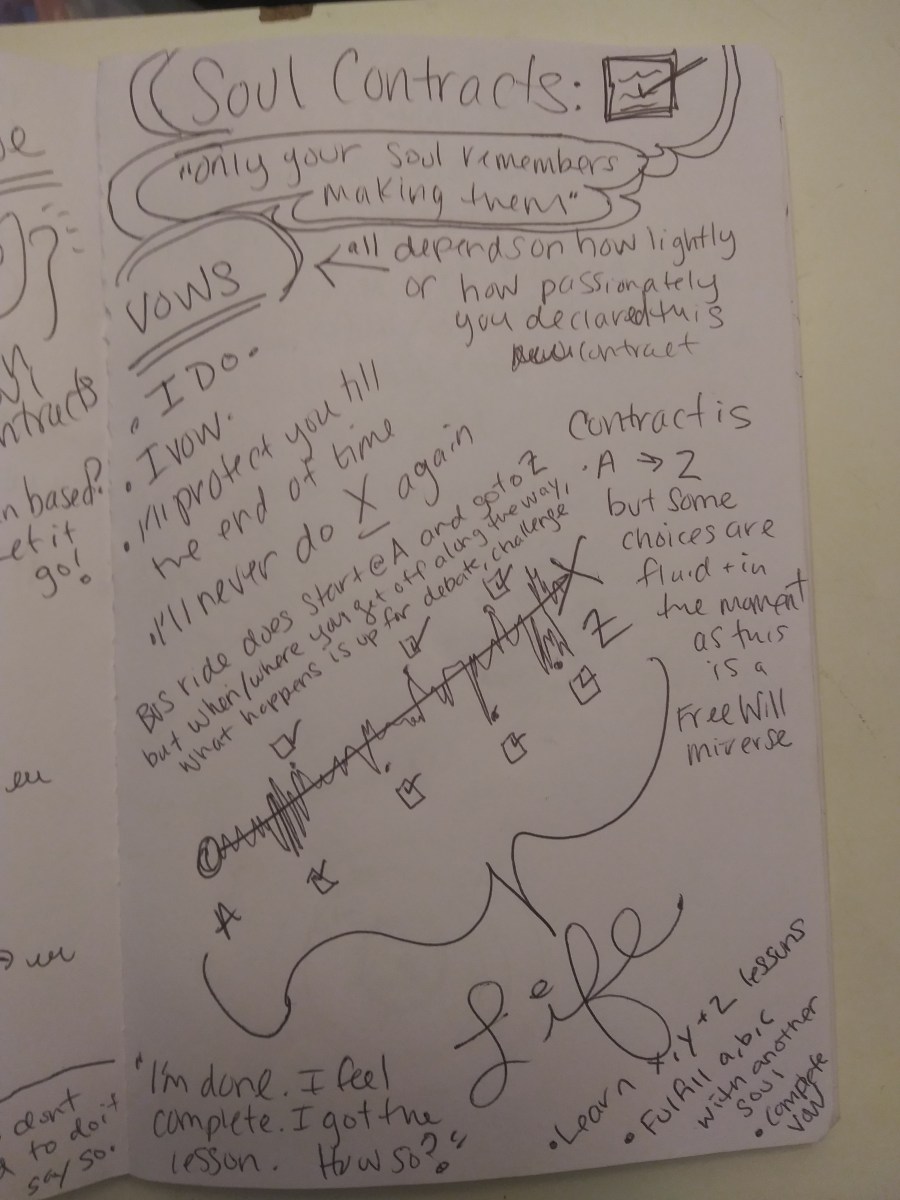 Soul Contracts:
"only your soul remembers
making them"
VOWS
all depends on how lightly
or how passionately
you declared this
contract
• I DO.
• I vow.
• I'll protect you till
the end of time
• I'll never do X again
Bus ride does start @ A and go to Z
but when/where you get off along the way,
what happens is up for debate, challenge
Contract is
• A → Z
but some
choices are
fluid + in
the moment
as this
is a
Free Will
miverse
A
Z
Life
• Learn x, y + z lessons
• Fulfill a, b, c
with another
soul
• complete
vow
"I'm done. I feel
complete. I got the
lesson. How so?"
ntracts
n based?
et it
go!
dont
to do it
say so.